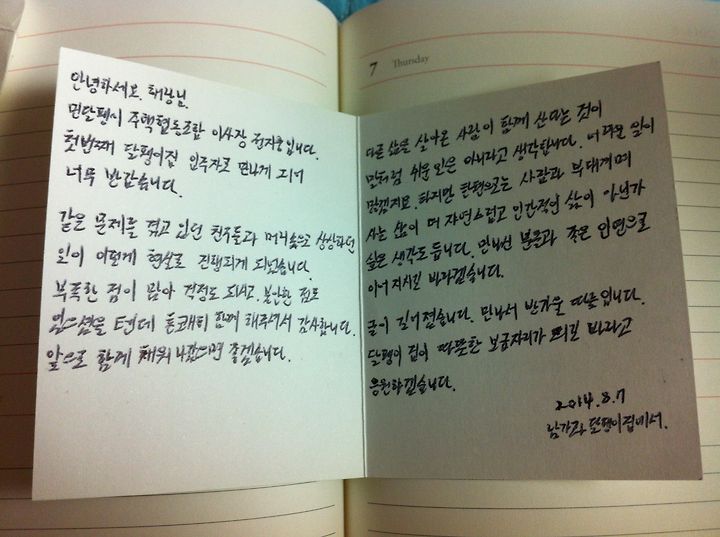 안녕하세요. 해랑님.
민달팽이 주택협동조합 이사장 권지웅입니다.
첫번째 달팽이집 입주자로 만나게 되어
너무 반갑습니다.
같은 문제를 겪고 있던 친구들과 머릿속으로 상상하던
일이 이렇게 현실로 진행되게 되었습니다.
부족한 점이 많아 걱정도 되시고, 불안한 점도
있으셨을 텐데 흔쾌히 함께 해주셔서 감사합니다.
앞으로 함께 채워 나갔으면 좋겠습니다.
7 Thursday
다른 삶을 살아온 사람이 함께 산다는 것이
말처럼 쉬운 일은 아니라고 생각합니다. 어려운 일이
많겠지요. 하지만 한편으로는 사람과 부대끼며
사는 삶이 더 자연스럽고 인간적인 삶이 아닌가
싶은 생각도 듭니다. 만나신 분들과 좋은 인연으로
이어지시길 바라겠습니다.
글이 길어졌습니다. 만나서 반가울 따름입니다.
달팽이 집이 따뜻한 보금자리가 되길 바라고
응원하겠습니다.
2014.8.7
남가좌 달팽이집에서.